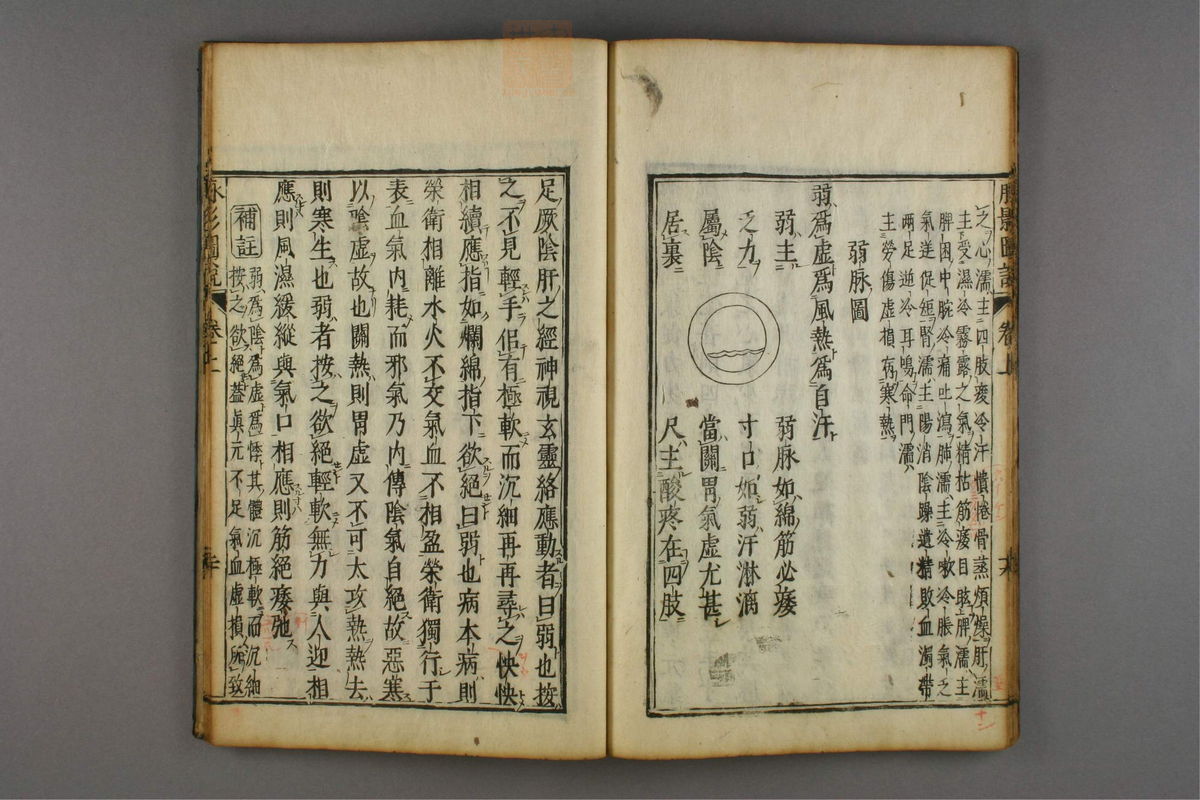 脉影圖説 卷上
之心濡主四肢痠冷汗憒惓骨蒸煩燥肝濡
主受濕冷霧露之氣精枯筋痿目眩脾濡主
脾困中腕冷痛吐瀉肺濡主冷嗽冷脹氣乏
氣逆促短腎濡主陽消陰躁遺精敗血濁帶
兩足逆冷耳鳴命門濡
主勞傷虛損有寒熱
弱脉圖
弱爲虛爲風熱爲自汗
弱主 弱脉如綿筋必痿
乏力 寸口如弱汗淋漓
屬陰 當關胃氣虛尤甚
居裏 尺主酸疼在四肢
足厥陰肝之經神視玄靈絡應動者曰弱也按
之不見輕手但有極軟而沉細再再尋之怏怏
相續應指如爛綿指下欲絕曰弱也病本病則
榮衛相離水火不交氣血不相盈榮衛獨行于
表血氣内耗而邪氣乃内傳陰氣自絕故惡寒
以陰虛故也關熱則胃虛又不可太攻熱熱去
則寒生也弱者按之欲絕輕軟無力與人迎相
應則風濕緩縱與氣口相應則筋絕痿弛
補註
弱爲陰爲虛爲悸其體沉極軟而沉細
按之欲絕蓋眞元不足氣血虛損所致